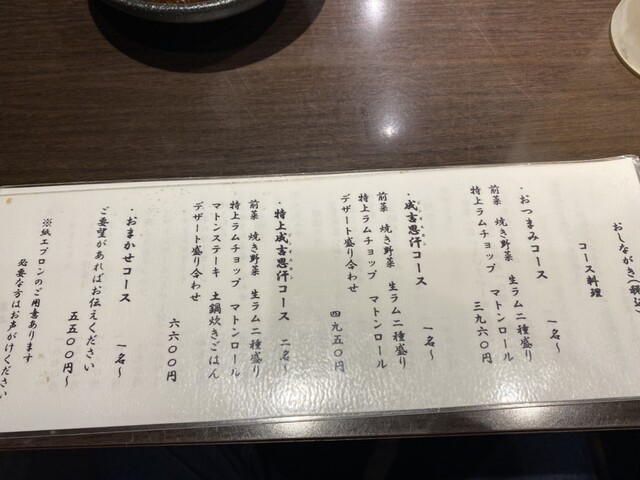 おしながき(税込)
コース料理
・おつまみコース　一名〜
前菜　焼き野菜　生ラム二種盛り
特上ラムチョップ　マトンロール
三九六〇円
・成吉思汗コース　一名〜
前菜　焼き野菜　生ラム二種盛り
特上ラムチョップ　マトンロール
デザート盛り合わせ
四九五〇円
・特上成吉思汗コース　二名〜
前菜　焼き野菜　生ラム二種盛り
特上ラムチョップ　マトンロール
マトンステーキ　土鍋炊きごはん
デザート盛り合わせ
六六〇〇円
・おまかせコース　一名〜
ご要望があればお伝えください
五五〇〇円〜
※紙エプロンのご用意あります
必要な方はお声がけください